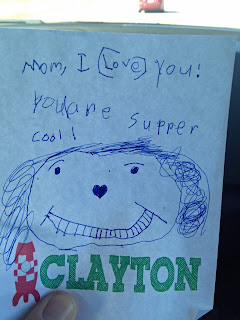 Mom, I [Love] you!
you are supper
cool!
CLAYTON